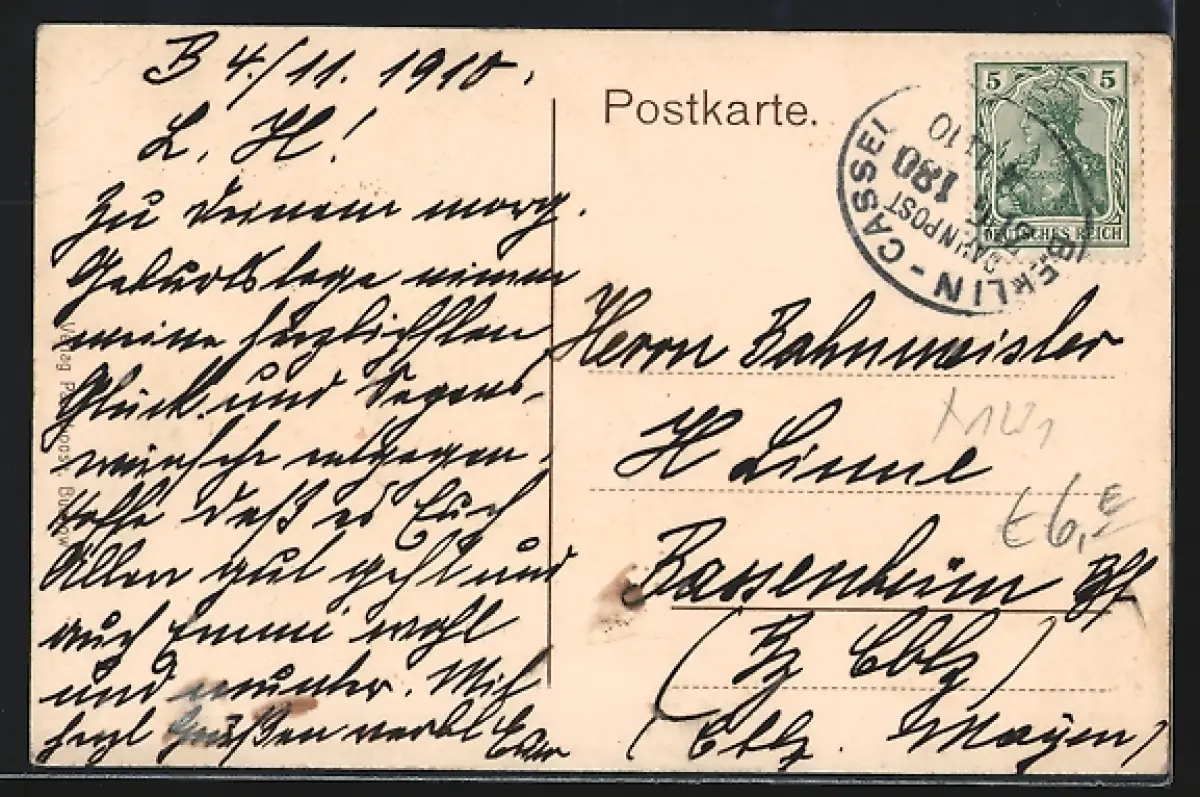 B 4./11. 1910.
L. H!
Zu Deinem morg.
Geburtstage nimm
meine herzlichsten
Glück und Segens-
wünsche entgegen.
Hoffe daß es Euch
Allen gut geht und
auch Emmi wohl
und munter. Mit
herzl Grüßen verbl Euer
Postkarte.
5 5
DEUTSCHES REICH
BERLIN - CASSEL
BAHNPOST
180
11 10
Herrn Bahnmeister
H Linne
Bassenheim Bhf
(Bz Cblz)
(Cblz. Mayen)
€ 6,-
Verlag Burow